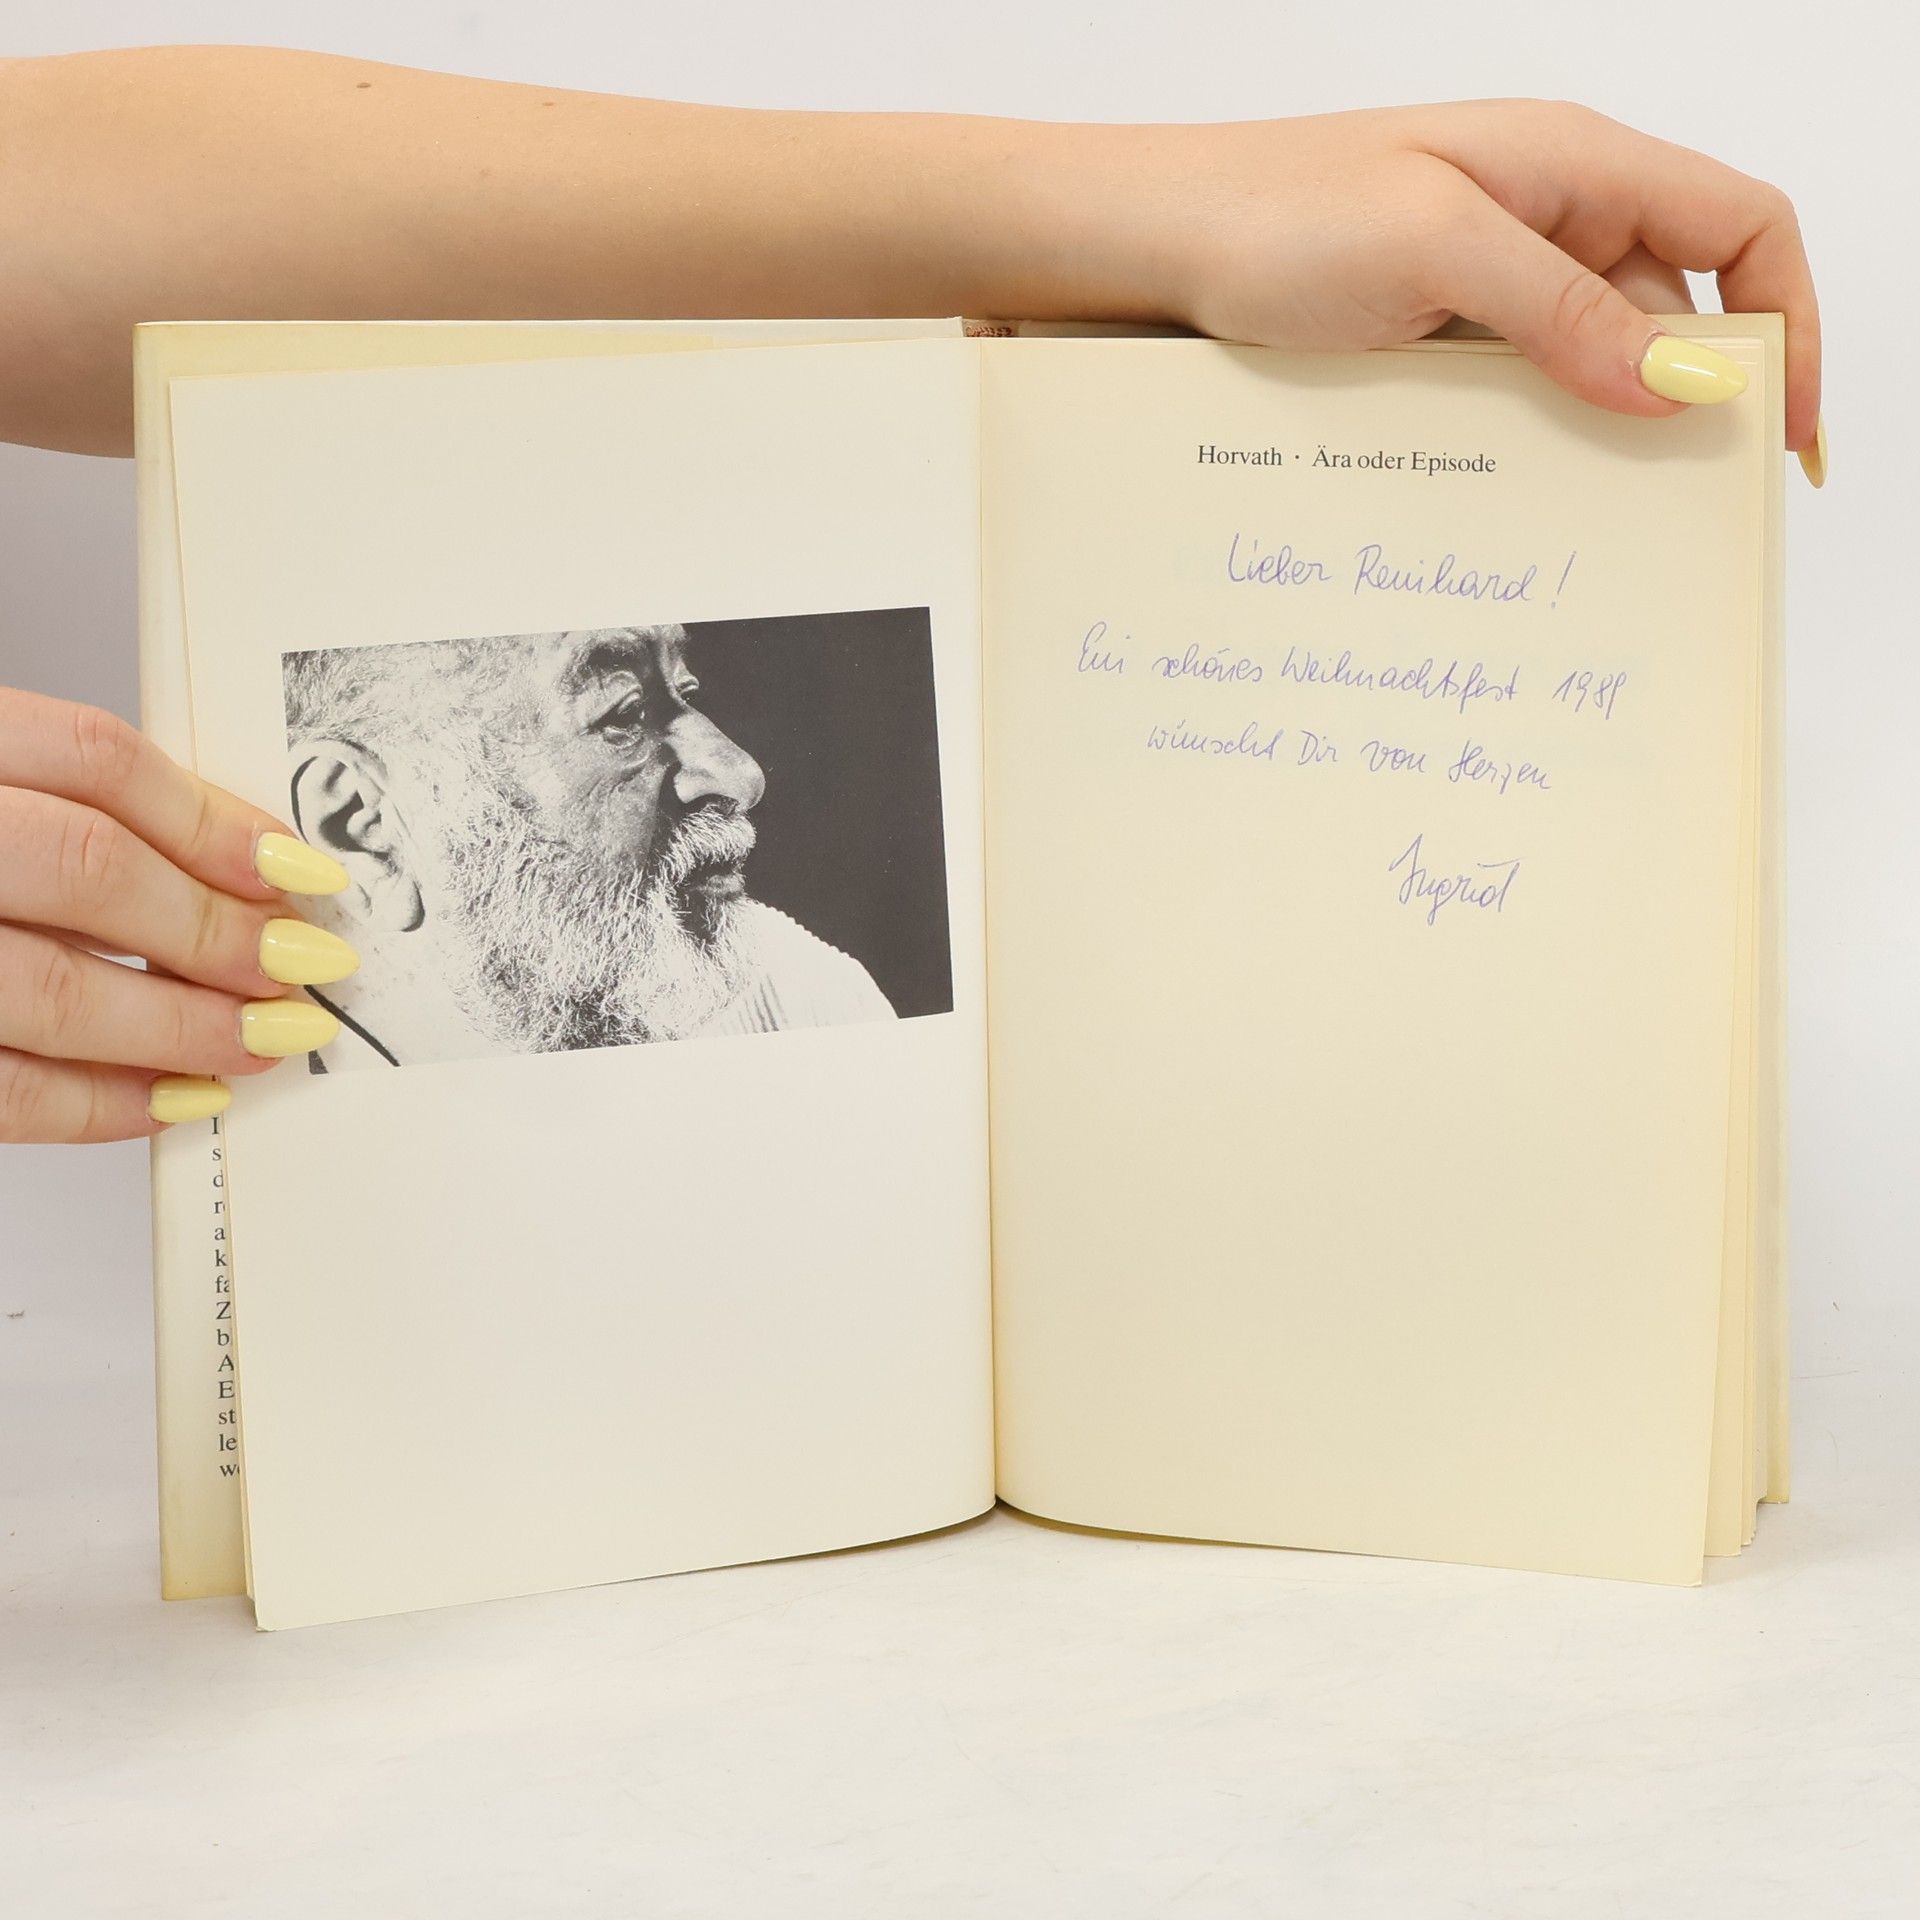 I
s
d
r
a
k
fa
Z
b
A
E
st
le
we
Horvath · Ära oder Episode
Lieber Reinhard !
Ein schönes Weihnachtsfest 1989
wünscht Dir von Herzen
Ingrid